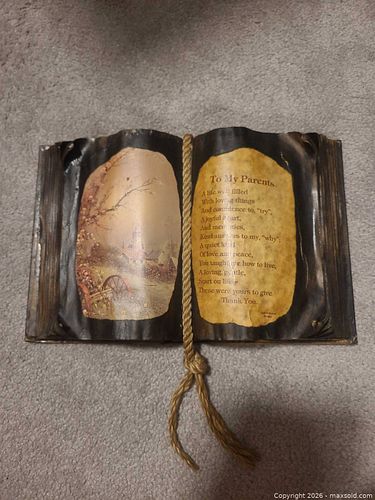 To My Parents
A life well filled
With loving things
And confidence to, "try",
A joyful heart,
And memories,
Kind answers to my, "why",
A quiet kind
Of love and peace,
You taught me how to live,
A loving, gentle,
Start on life,
These were yours to give.
Thank You.
Copyright 2026 - maxsold.com